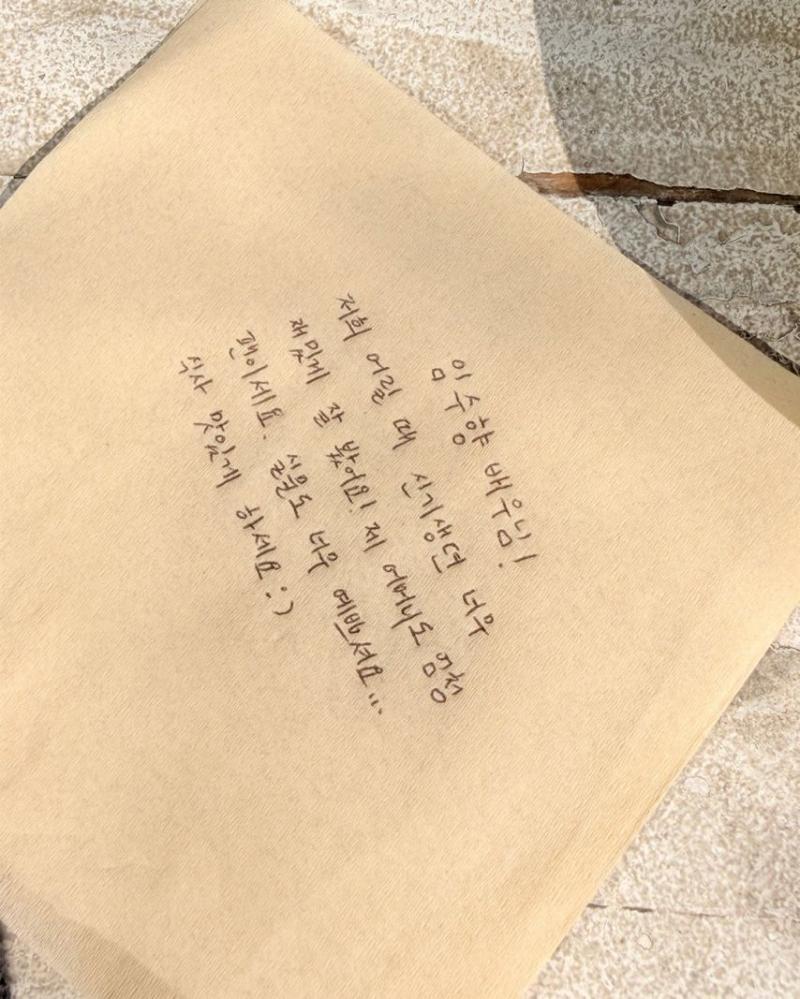 임수향 배우님!
저희 어릴 때 신기생뎐 너무
재밌게 잘 봤어요! 제 어머니도 엄청
팬이세요. 실물도 너무 예쁘셔요...
식사 맛있게 하세요 :)